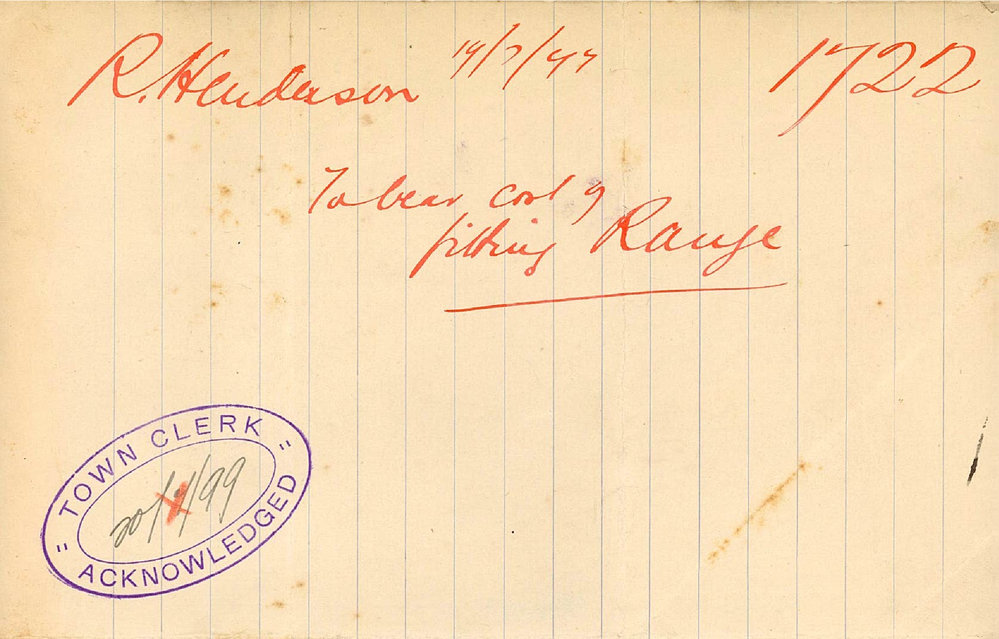 R. Henderson 19/7/99 1722
To bear cost of
fitting Range
TOWN CLERK
20/7/99
ACKNOWLEDGED